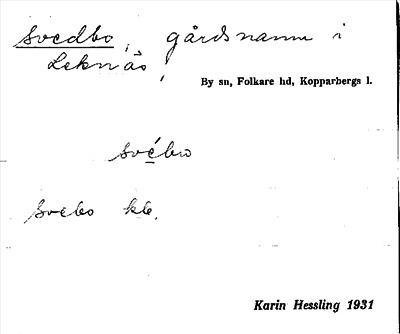 Svedbo, gårdsnamn i
Leknäs,
By sn, Folkare hd, Kopparbergs l.
svébo
Svebo kb.
Karin Hessling 1931